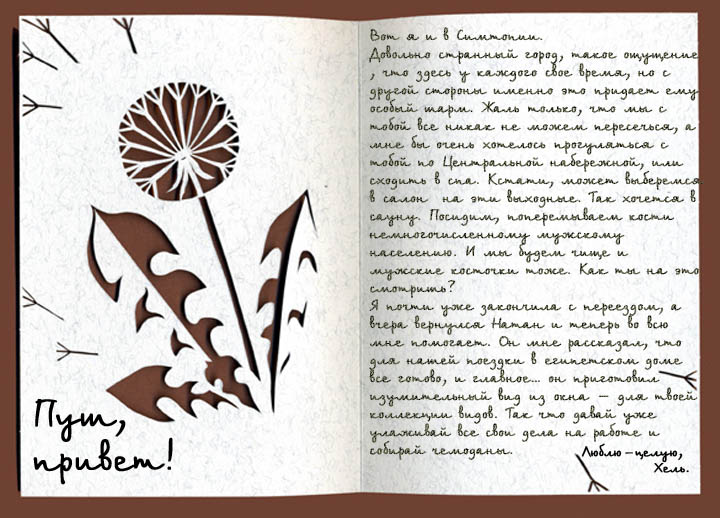 Пуш,
привет!
Вот я и в Симтопии.
Довольно странный город, такое ощущение
, что здесь у каждого свое время, но с
другой стороны именно это придает ему
особый шарм. Жаль только, что мы с
тобой все никак не можем пересечься, а
мне бы очень хотелось прогуляться с
тобой по Центральной набережной, или
сходить в спа. Кстати, может выберемся
в салон на эти выходные. Так хочется в
сауну. Посидим, поперемываем кости
немногочисленному мужскому
населению. И мы будем чище и
мужские косточки тоже. Как ты на это
смотришь?
Я почти уже закончила с переездом, а
вчера вернулся Натан и теперь во всю
мне помогает. Он мне рассказал, что
для нашей поездки в египетском доме
все готово, и главное... он приготовил
изумительный вид из окна – для твоей
коллекции видов. Так что давай уже
улаживай все свои дела на работе и
собирай чемоданы.
Люблю – целую,
Хель.